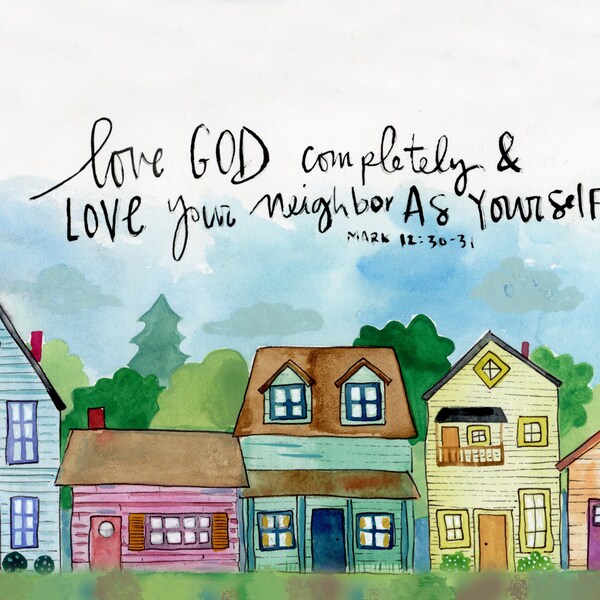 love GOD completely &
LOVE your neighbor AS YOURSELF
MARK 12:30-31